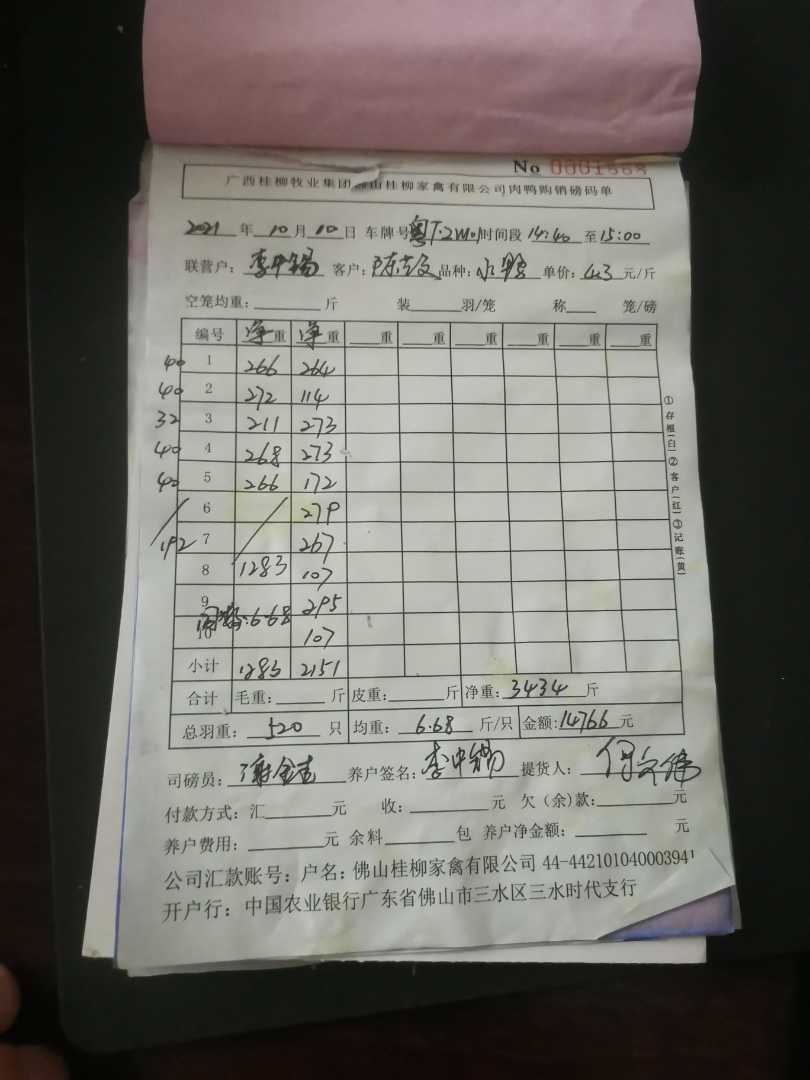 No 0001668
广西桂柳牧业集团佛山桂柳家禽有限公司肉鸭购销磅码单
2021 年 10 月 10 日 车牌号 粤T·2M01 时间段 14:40 至 15:00
联营户: 李中锡 客户: 品种: 水鸭 单价: 4.3 元/斤
空笼均重: 斤 装 羽/笼 称 笼/磅
编号 净重 净重 重 重 重 重 重 重
40 1 266 264
40 2 272 114
32 3 211 273
40 4 268 273
40 5 266 172
6 279
192 7 267
8 1283 107
9 295
10 6.68 107
小计 1283 2151
合计 毛重: 斤 皮重: 斤 净重: 3434 斤
总羽重: 520 只 均重: 6.68 斤/只 金额: 14766 元
司磅员: 养户签名: 李中锡 提货人:
付款方式: 汇 元 收: 元 欠(余)款: 元
养户费用: 元 余料 包 养户净金额: 元
公司汇款账号: 户名: 佛山桂柳家禽有限公司 44-442101040003941
开户行: 中国农业银行广东省佛山市三水区三水时代支行
①存根(白)②客户(红)③记账(黄)